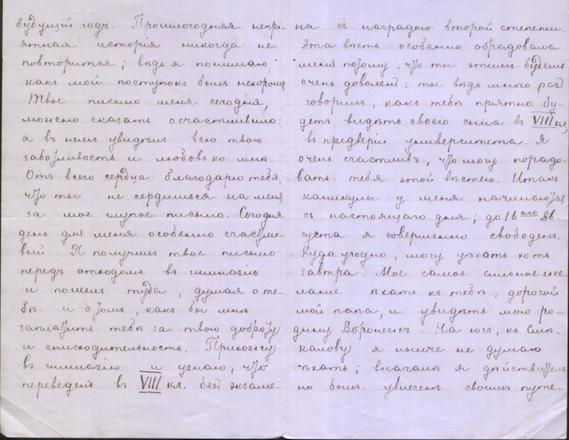 будущій годъ. Прошлогодняя непрі-
ятная исторія никогда не
повторится; вѣдь я понимаю,
какъ мой поступокъ былъ нехорошъ
Твое письмо меня сегодня,
можно сказать осчастливило:
я въ немъ увидѣлъ всю твою
заботливость и любовь ко мнѣ.
Отъ всего сердца благодарю тебя,
что ты не сердишься на меня
за мое глупое письмо. Сегодня
день для меня особенно счастли-
вый. Я получилъ твое письмо
передъ отходомъ въ гимназію
и пошелъ туда, думая о те-
бѣ и о томъ, какъ бы мнѣ
заплатить тебѣ за твою доброту
и снисходительность. Прихожу
въ гимназію и узнаю, что
переведенъ въ VIII кл. безъ экзаме-
на съ наградою второй степени.
Эта вѣсть особенно обрадовала
меня потому, что ты этимъ будешь
очень доволенъ; ты вѣдь много разъ
говорилъ, какъ тебѣ пріятно бу-
детъ видѣть своего сына въ VIII кл,
въ преддверіи университета. Я
очень счастливъ, что могу порадо-
вать тебя этой вѣстью. Итакъ
каникулы у меня начинаются
съ настоящаго дня; до 16 ого Ав-
густа я совершенно свободенъ.
Куда угодно, могу уѣхать хоть
завтра. Мое самое сильное же-
ланіе ѣхать къ тебѣ, дорогой
мой папа, и увидѣть мою ро-
дину Воронежъ. На югъ, къ
калову я нынче не думаю
ѣхать; вначалѣ я дѣйствитель-
но былъ увлеченъ своимъ путе-